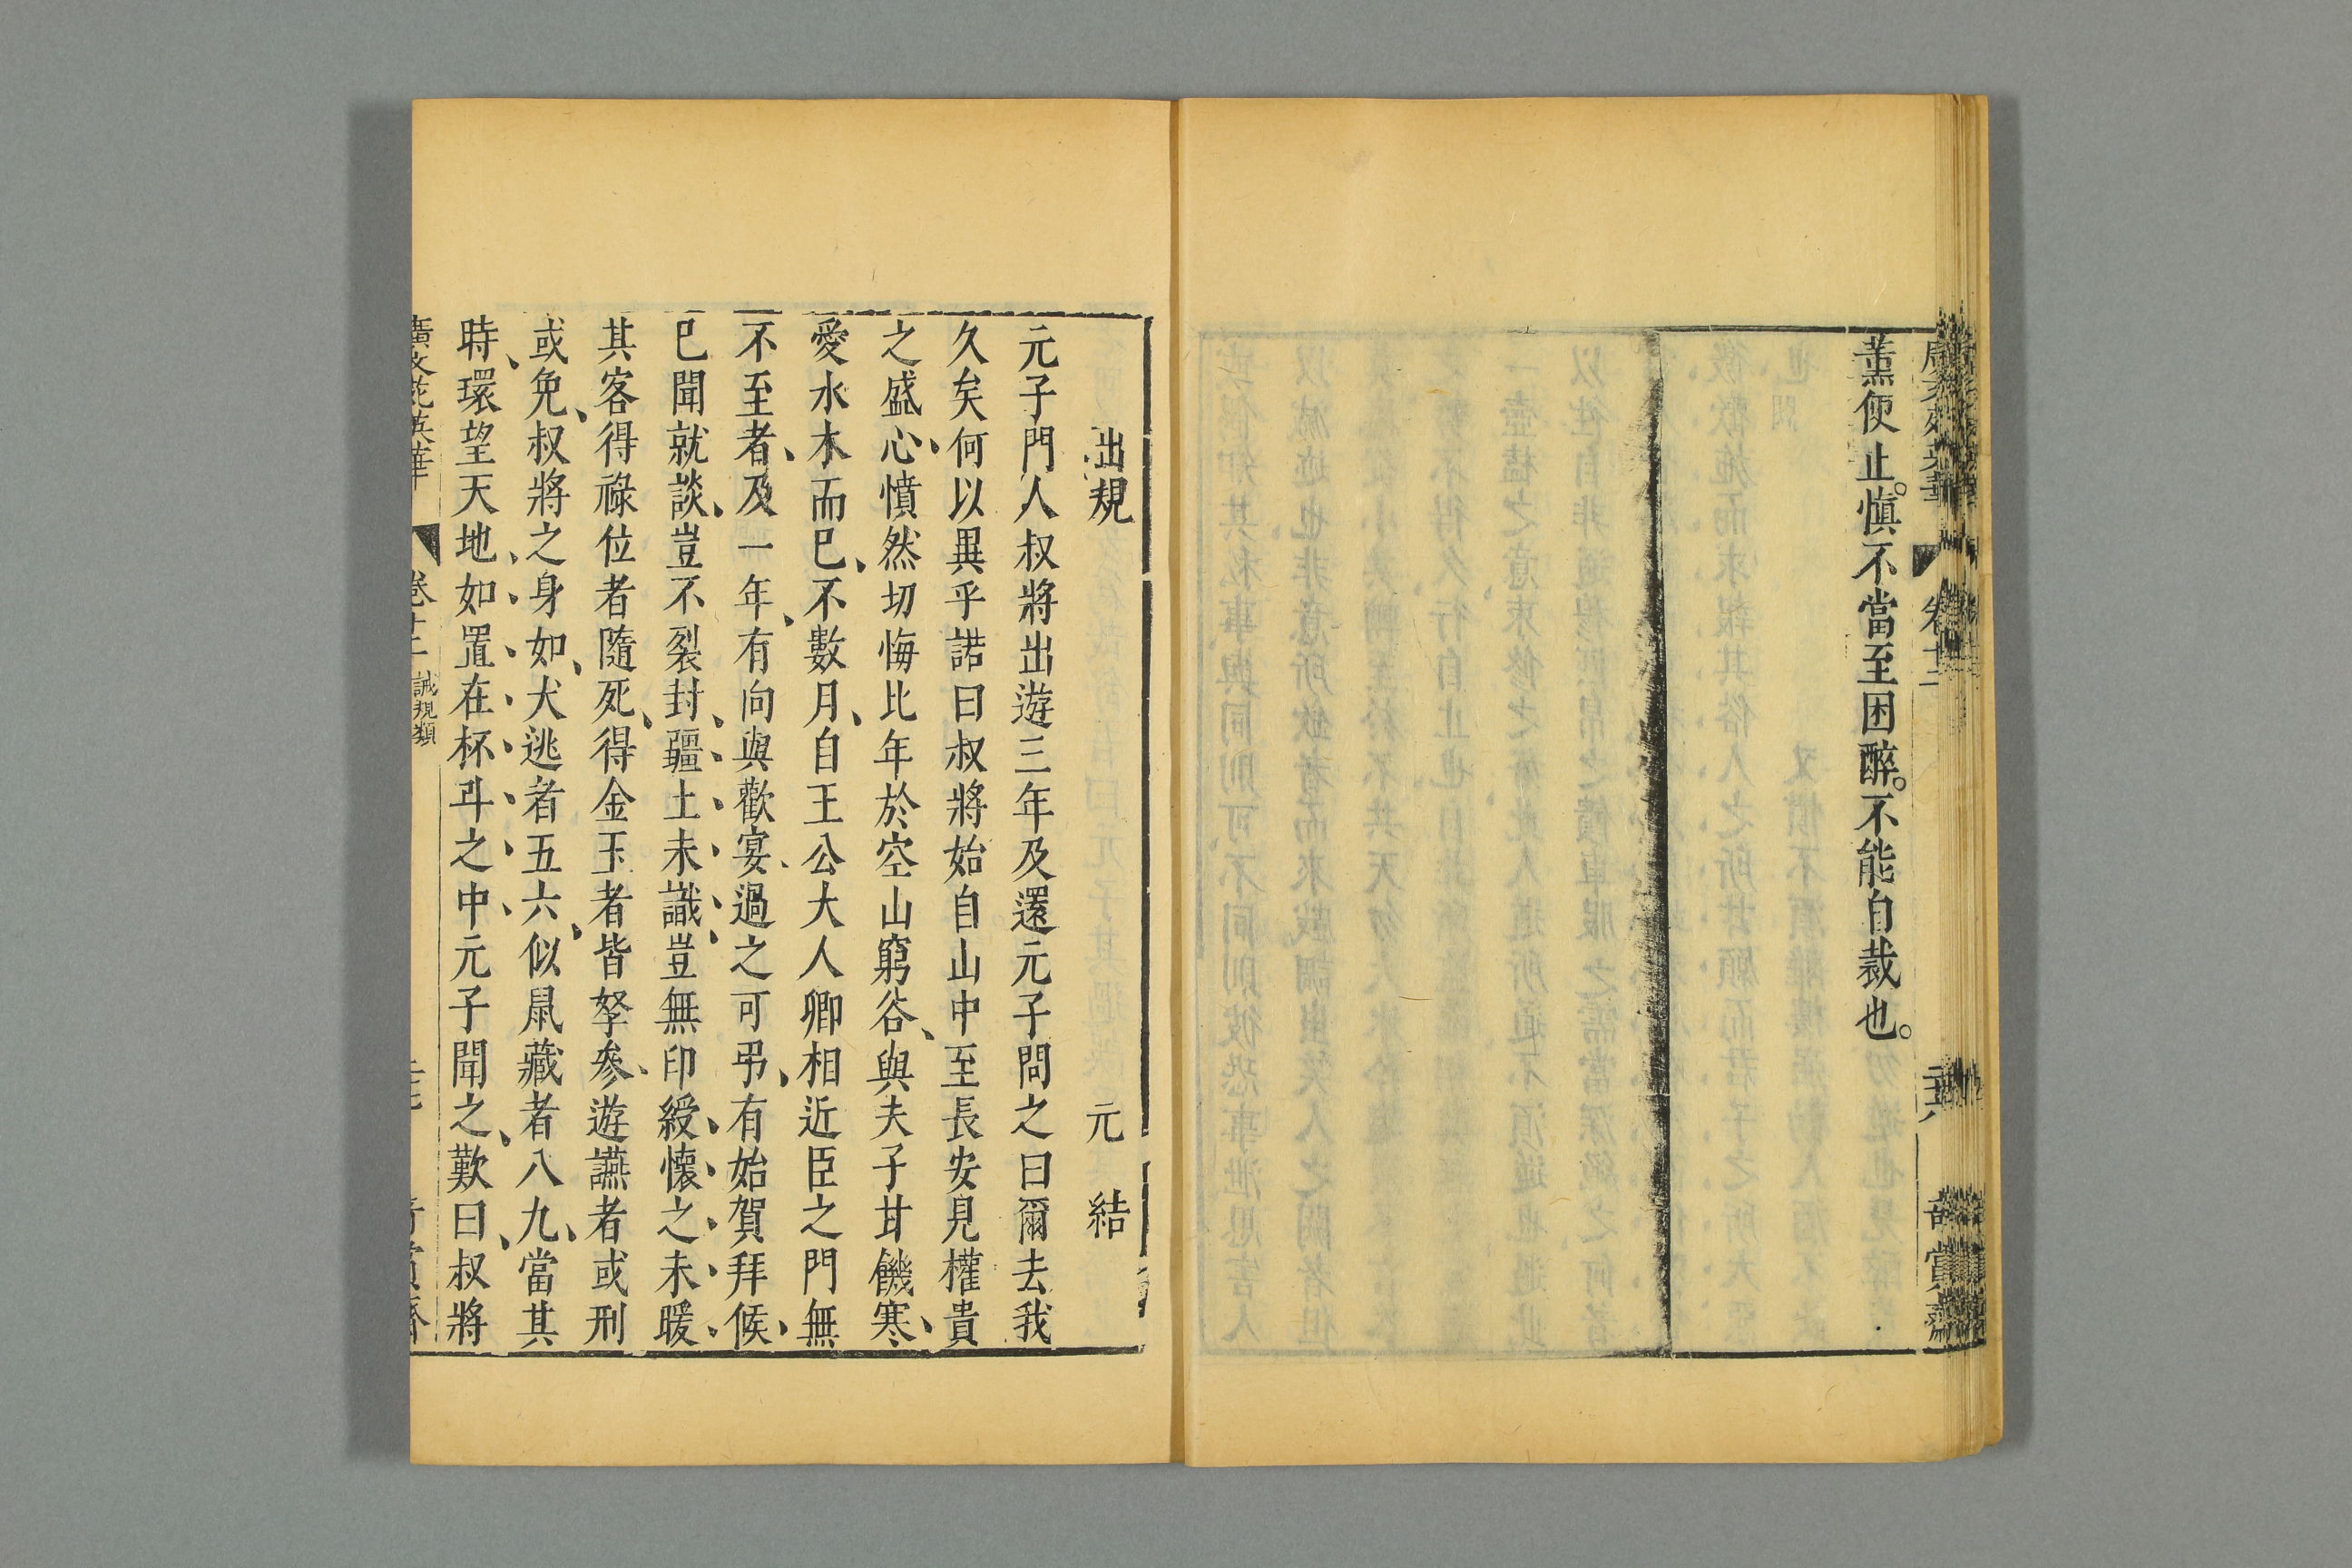 薰便止。慎不當至困醉。不能自裁也。
卷十二
賞齋
出規 元結
元子門人叔將出遊三年及還元子問之曰爾去我
久矣何以異乎諾曰叔將始自山中至長安見權貴
之盛、心憤然切悔比年於空山窮谷、與夫子甘饑寒、
愛水木而已、不數月、自王公大人卿相近臣之門無
不至者、及一年、有向與歡宴、過之可弔、有始賀拜候、
已聞就談、豈不裂封、疆、土、未、識、豈、無印綬、懷、之、未、暖、
其客得祿位者隨死、得金玉者皆孥參、遊讌者或刑
或免、叔將之身如、犬逃者五六、似鼠藏者八九、當其
時、環望天地、如、置、在、杯、斗、之、中、元子聞之、歎曰、叔將
廣文苑英華 卷十二 誡規類